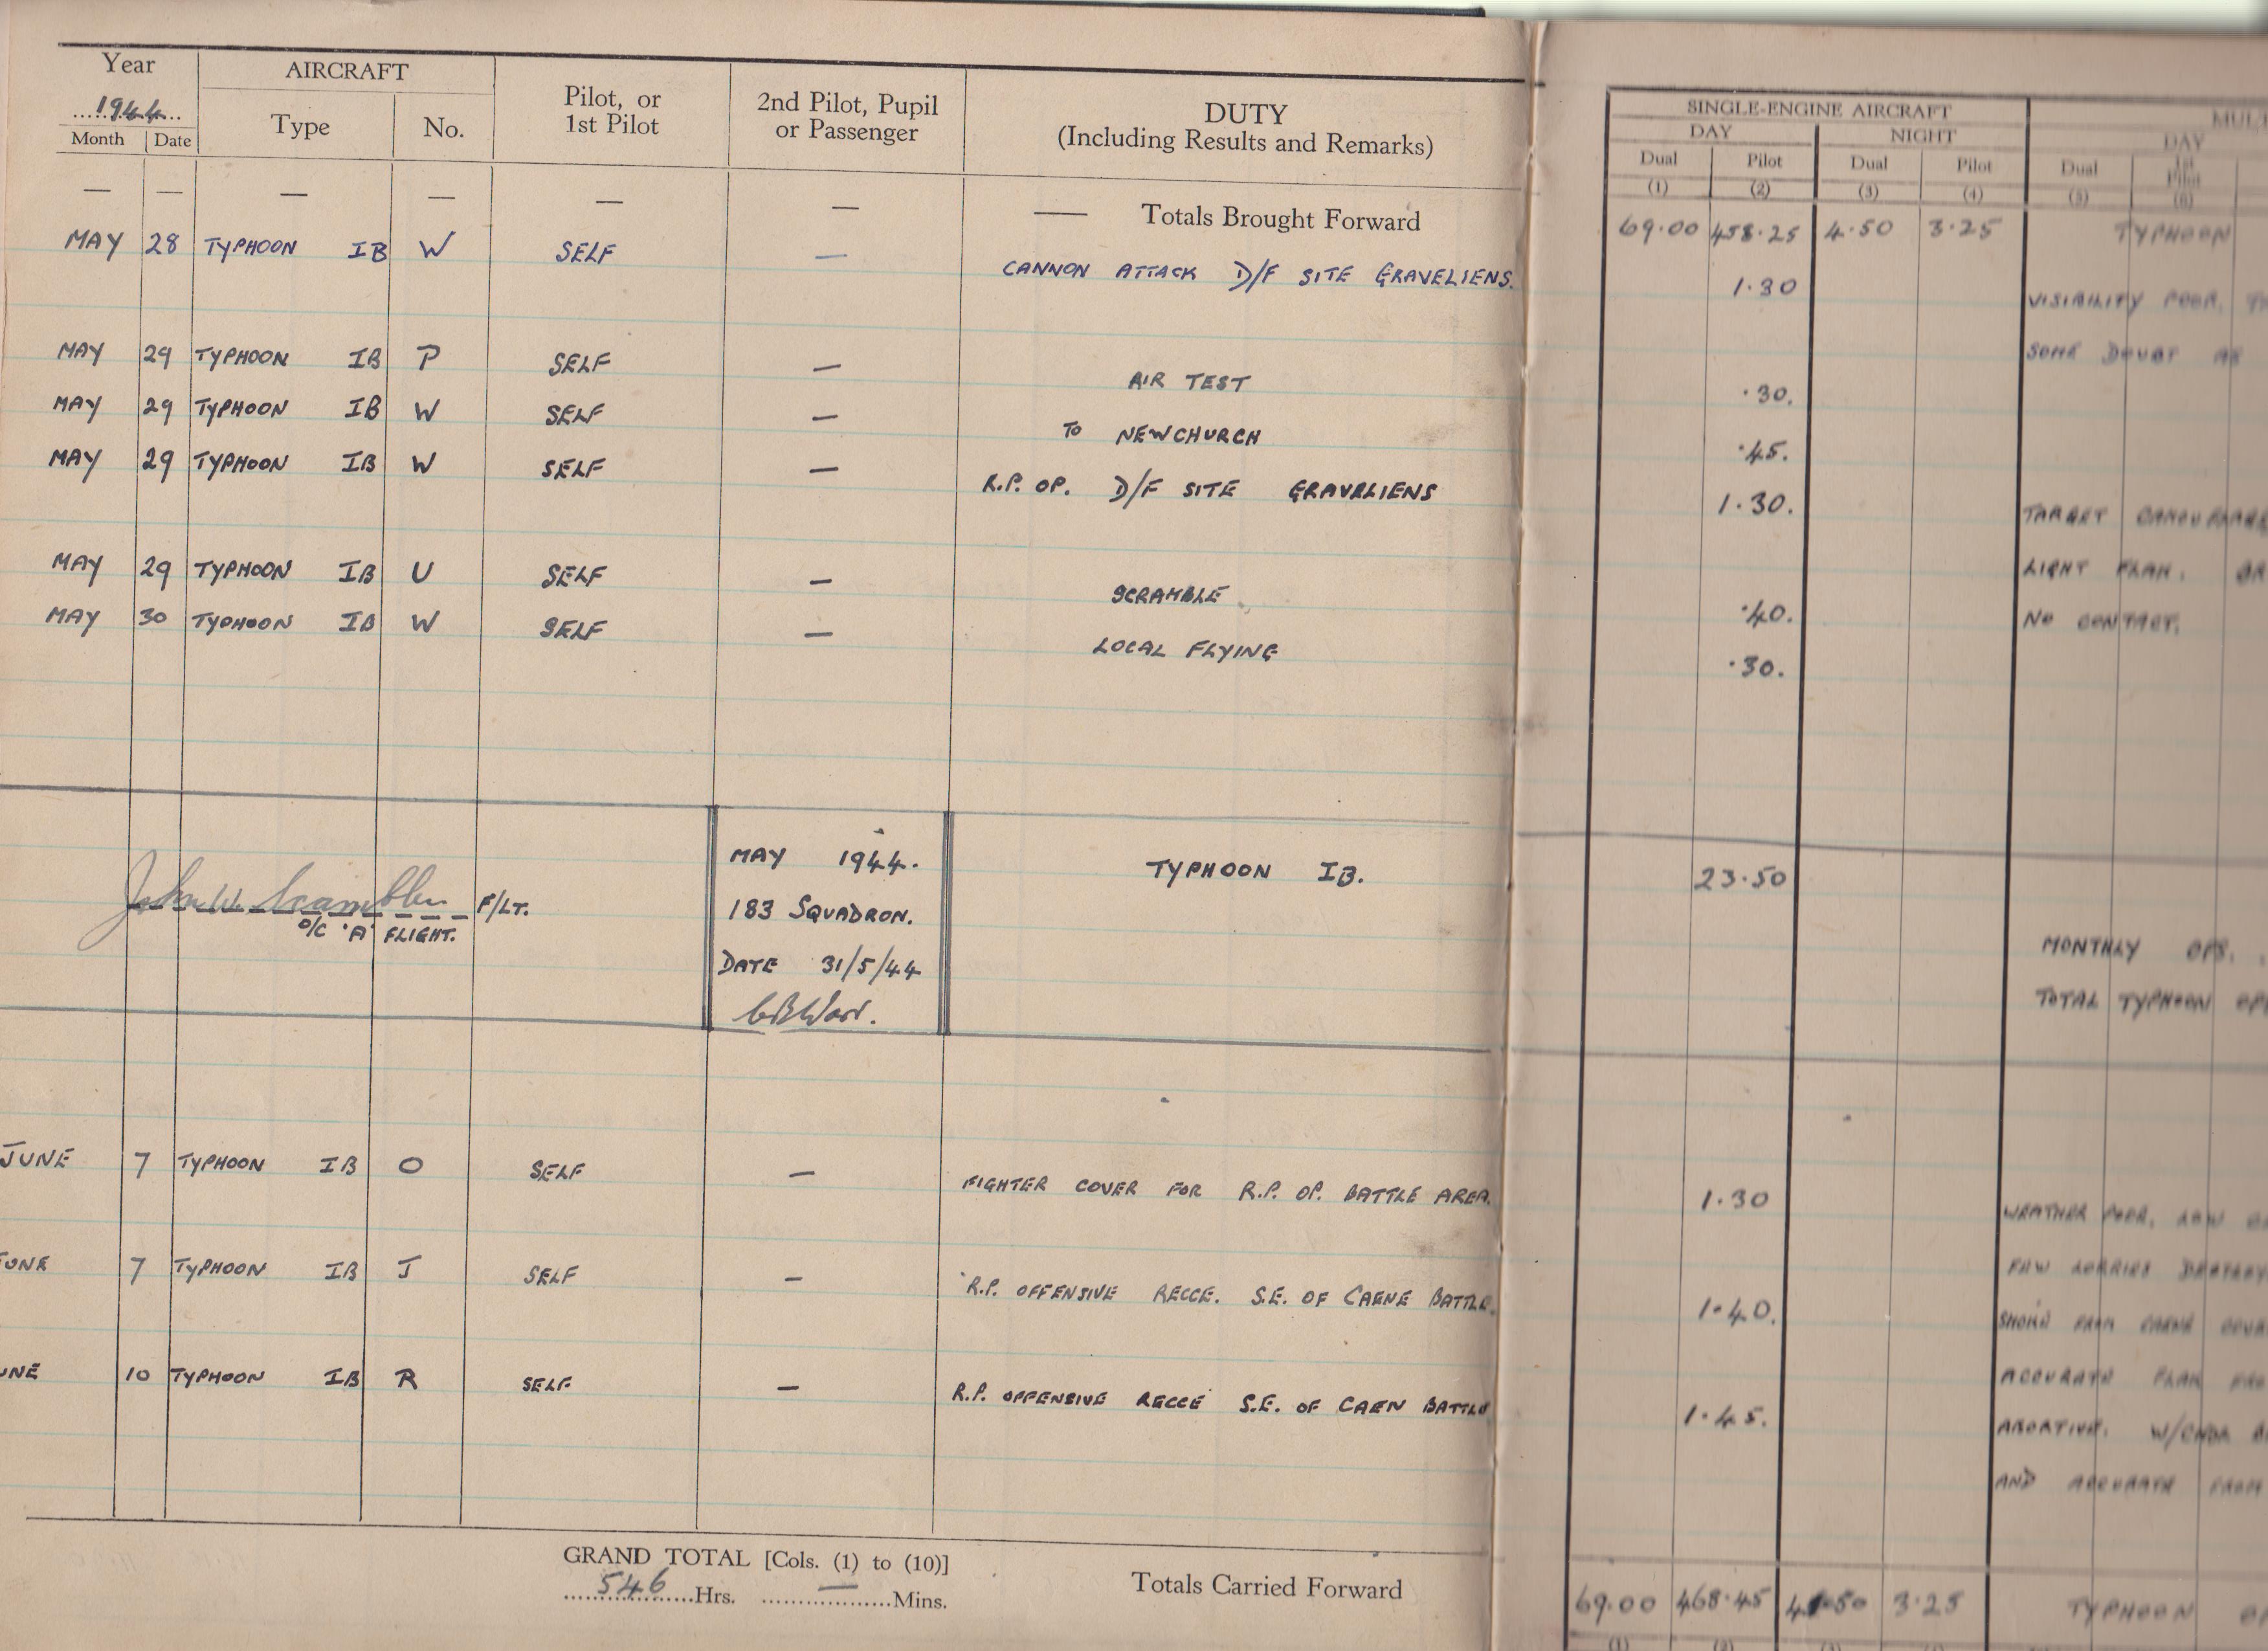 Year AIRCRAFT Pilot, or 1st Pilot 2nd Pilot, Pupil or Passenger DUTY (Including Results and Remarks) SINGLE-ENGINE AIRCRAFT MULT
1944 Type No. DAY NIGHT DAY
Month Date Dual Pilot Dual Pilot Dual 1st Pilot
(1) (2) (3) (4) (5) (6)
— — — — — — — Totals Brought Forward 69.00 458.25 4.50 3.25 TYPHOON
MAY 28 TYPHOON IB W SELF — CANNON ATTACK D/F SITE GRAVELIENS. 1.30 VISIBILITY POOR,
SOME DOUBT AS
MAY 29 TYPHOON IB P SELF — AIR TEST .30.
MAY 29 TYPHOON IB W SELF — TO NEWCHURCH .45.
MAY 29 TYPHOON IB W SELF — R.P. OP. D/F SITE GRAVELIENS 1.30. TARGET
LIGHT FLAK.
MAY 29 TYPHOON IB U SELF — SCRAMBLE .40. NO CONTACT.
MAY 30 TYPHOON IB W SELF — LOCAL FLYING .30.
MAY 1944. TYPHOON IB. 23.50
John W. Scambler F/LT. 183 SQUADRON.
O/C 'A' FLIGHT. MONTHLY OPS.
DATE 31/5/44 TOTAL TYPHOON OPS
JUNE 7 TYPHOON IB O SELF — FIGHTER COVER FOR R.P. OP. BATTLE AREA. 1.30 WEATHER POOR, LOW
FEW LORRIES
UNE 7 TYPHOON IB J SELF — R.P. OFFENSIVE RECCE. S.E. OF CAENE BATTLE. 1.40. FROM
ACCURATE FLAK
UNE 10 TYPHOON IB R SELF — R.P. OFFENSIVE RECCE S.E. OF CAEN BATTLE 1.45. ABORTIVE. W/CMDR
AND ACCURATE FROM
GRAND TOTAL [Cols. (1) to (10)]
546 Hrs. — Mins. Totals Carried Forward 69.00 468.45 4.50 3.25 TYPHOON
(1) (2)